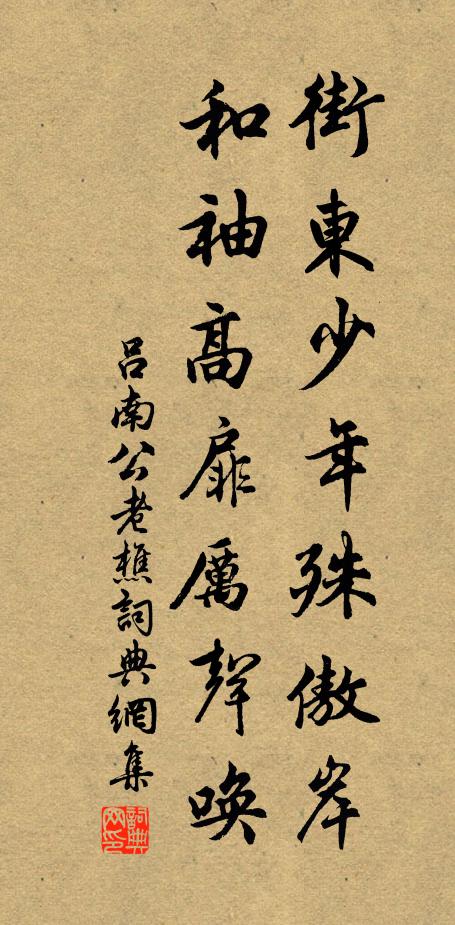 街東少年殊傲岸
和袖高扉厲聲喚
吕南公老樵詞典網集
詞典网印